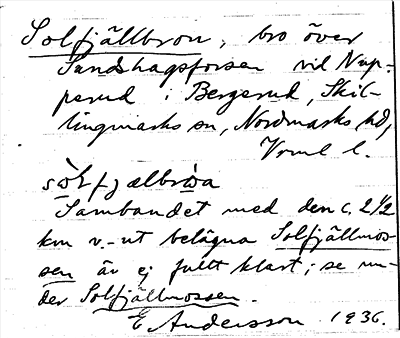 Solfjällbron, bro över
Sandshagsforsen vil Nup-
perud i Bergerud, Skil-
lingmarks sn, Nordmarks hd,
Vrml l.
sòɫfjælbròa
Sambandet med den c. 2 1/2
km v.-ut belägna Solfjällmos-
sen är ej fullt klart; se un-
der Solfjällmossen.
E Andersson 1936.